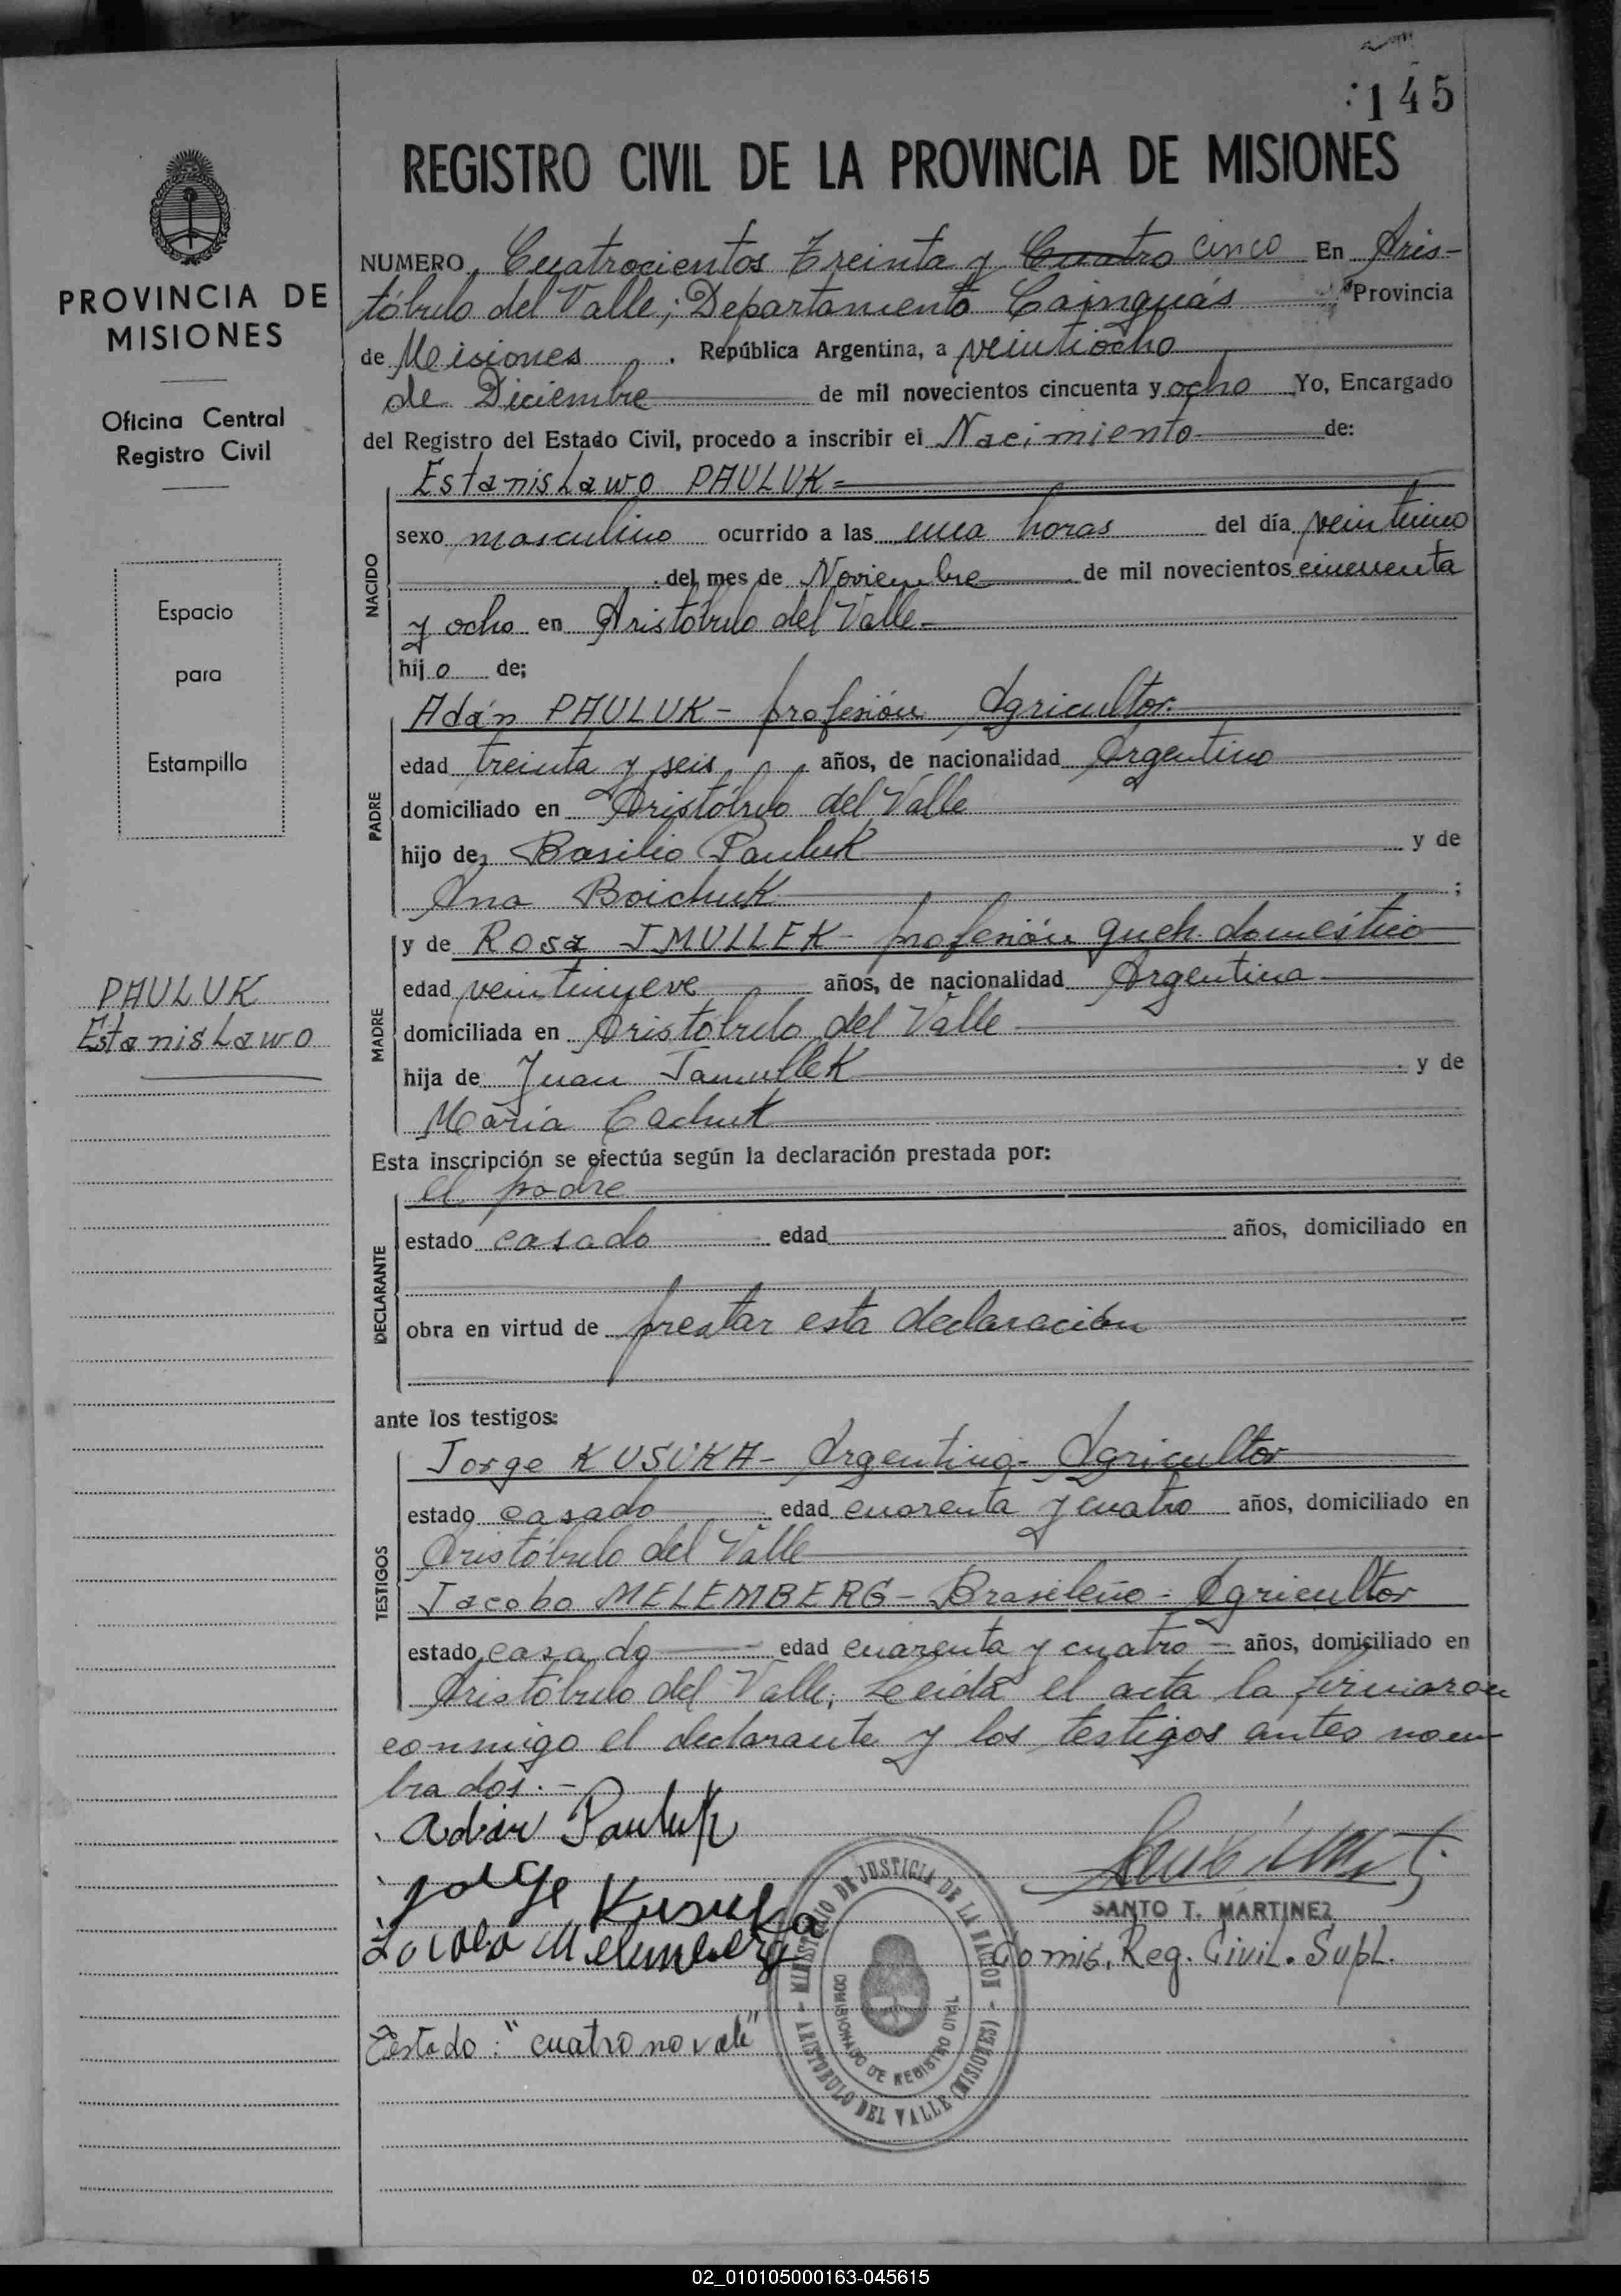 145
REGISTRO CIVIL DE LA PROVINCIA DE MISIONES
PROVINCIA DE
MISIONES
Oficina Central
Registro Civil
Espacio
para
Estampilla
PAULUK
Estanislawo
NUMERO Cuatrocientos Treinta y Cuatro cinco En Aris-
tóbulo del Valle, Departamento Cainguás Provincia
de Misiones. República Argentina, a veintiocho
de Diciembre de mil novecientos cincuenta y ocho Yo, Encargado
del Registro del Estado Civil, procedo a inscribir el Nacimiento de:
NACIDO
Estanislawo PAULUK=
sexo masculino ocurrido a las una horas del día veintiuno
del mes de Noviembre de mil novecientos cincuenta
y ocho en Aristóbulo del Valle
hijo de;
PADRE
Adán PAULUK- profesión Agricultor.
edad treinta y seis años, de nacionalidad Argentino
domiciliado en Aristóbulo del Valle
hijo de, Basilio Pauluk y de
Ana Boichuk ;
MADRE
y de Rosa JMULLEK- profesión queh. doméstico
edad veintinueve años, de nacionalidad Argentina
domiciliada en Aristóbulo del Valle
hija de Juan Jamullek y de
María Cachuk
Esta inscripción se efectúa según la declaración prestada por:
DECLARANTE
el padre
estado casado edad años, domiciliado en
obra en virtud de prestar esta declaración
ante los testigos:
TESTIGOS
Jorge KUSUKA- Argentino- Agricultor
estado casado edad cuarenta y cuatro años, domiciliado en
Aristóbulo del Valle
Jacobo MELEMBERG- Brasileño- Agricultor
estado casado edad cuarenta y cuatro = años, domiciliado en
Aristóbulo del Valle, Leída el acta la firmaron
conmigo el declarante y los testigos antes nom
brados.-
Adán Pauluk
Jorge Kusuka
Jacobo Melemberg
SANTO T. MARTINEZ
Comis. Reg. Civil. Supl.
MINISTERIO DE JUSTICIA DE LA NACION - ARISTOBULO DEL VALLE (MISIONES) -
COMISIONADO DE REGISTRO CIVIL
Testado: "cuatro no vale"
02_010105000163-045615